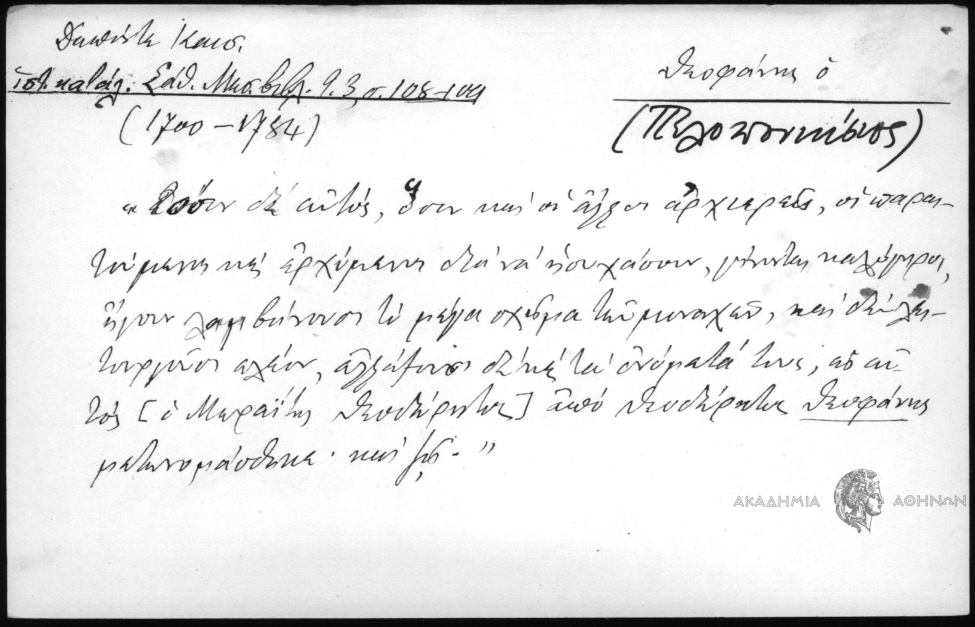 Δαπόντε Καισ.
ἱστ. καταλ. Σάθ. Μεσ. βιβλ. τ. 3, σ. 108-109
(1700 – 1784)
Θεοφάνης ὁ
(Πελοποννήσιος)
δὲ αὐτός, ὅσον καὶ οἱ ἄλλοι ἀρχιερεῖς, οἱ παραι-
τούμενοι καὶ ἐρχόμενοι διὰ νὰ ἡσυχάσουν, γίνονται καλόγηροι,
ἤγουν λαμβάνουσι τὸ μέγα σχῆμα τῶν μοναχῶν, καὶ δὲν λει-
τουργοῦσι πλέον, ἀλλάζουσι δὲ καὶ τὰ ὀνόματά τους, ὡς αὐ-
τὸς [ὁ Θεοδώρητος] ἀπὸ Θεοδώρητος Θεοφάνης
μετωνομάσθηκε· καὶ ζῇ."
ΑΚΑΔΗΜΙΑ ΑΘΗΝΩΝ